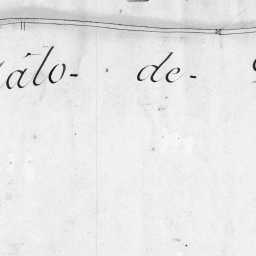 álo- de-